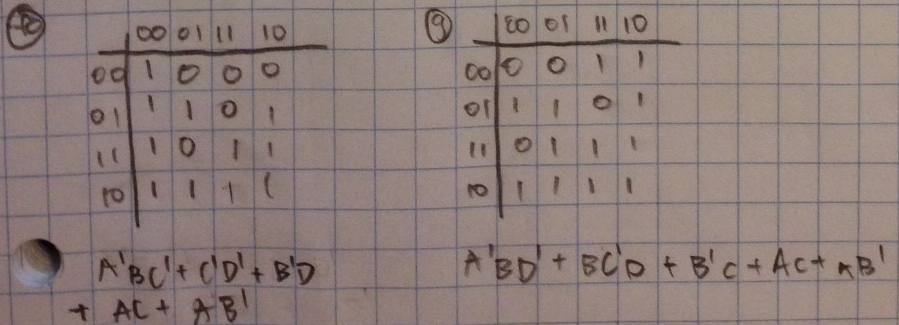 00 01 11 10
00 1 0 0 0
01 1 1 0 1
11 1 0 1 1
10 1 1 1 1
A'BC' + C'D' + B'D
+ AC + AB'
9
00 01 11 10
00 0 0 1 1
01 1 1 0 1
11 0 1 1 1
10 1 1 1 1
A'BD' + BC'D + B'C + AC + AB'